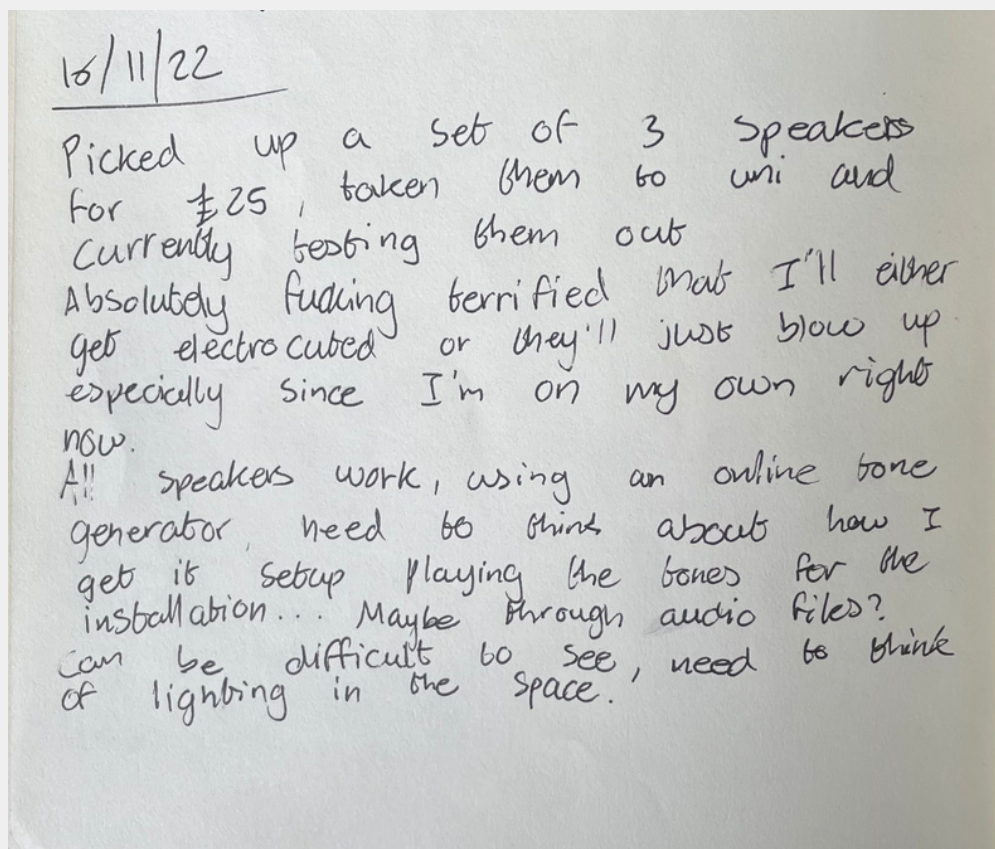 16/11/22
Picked up a set of 3 speakers
for £25, taken them to uni and
currently testing them out
Absolutely fucking terrified that I'll either
get electrocuted or they'll just blow up
especially since I'm on my own right
now.
All speakers work, using an online tone
generator, need to think about how I
get it setup playing the tones for the
installation... Maybe through audio files?
Can be difficult to see, need to think
of lighting in the space.